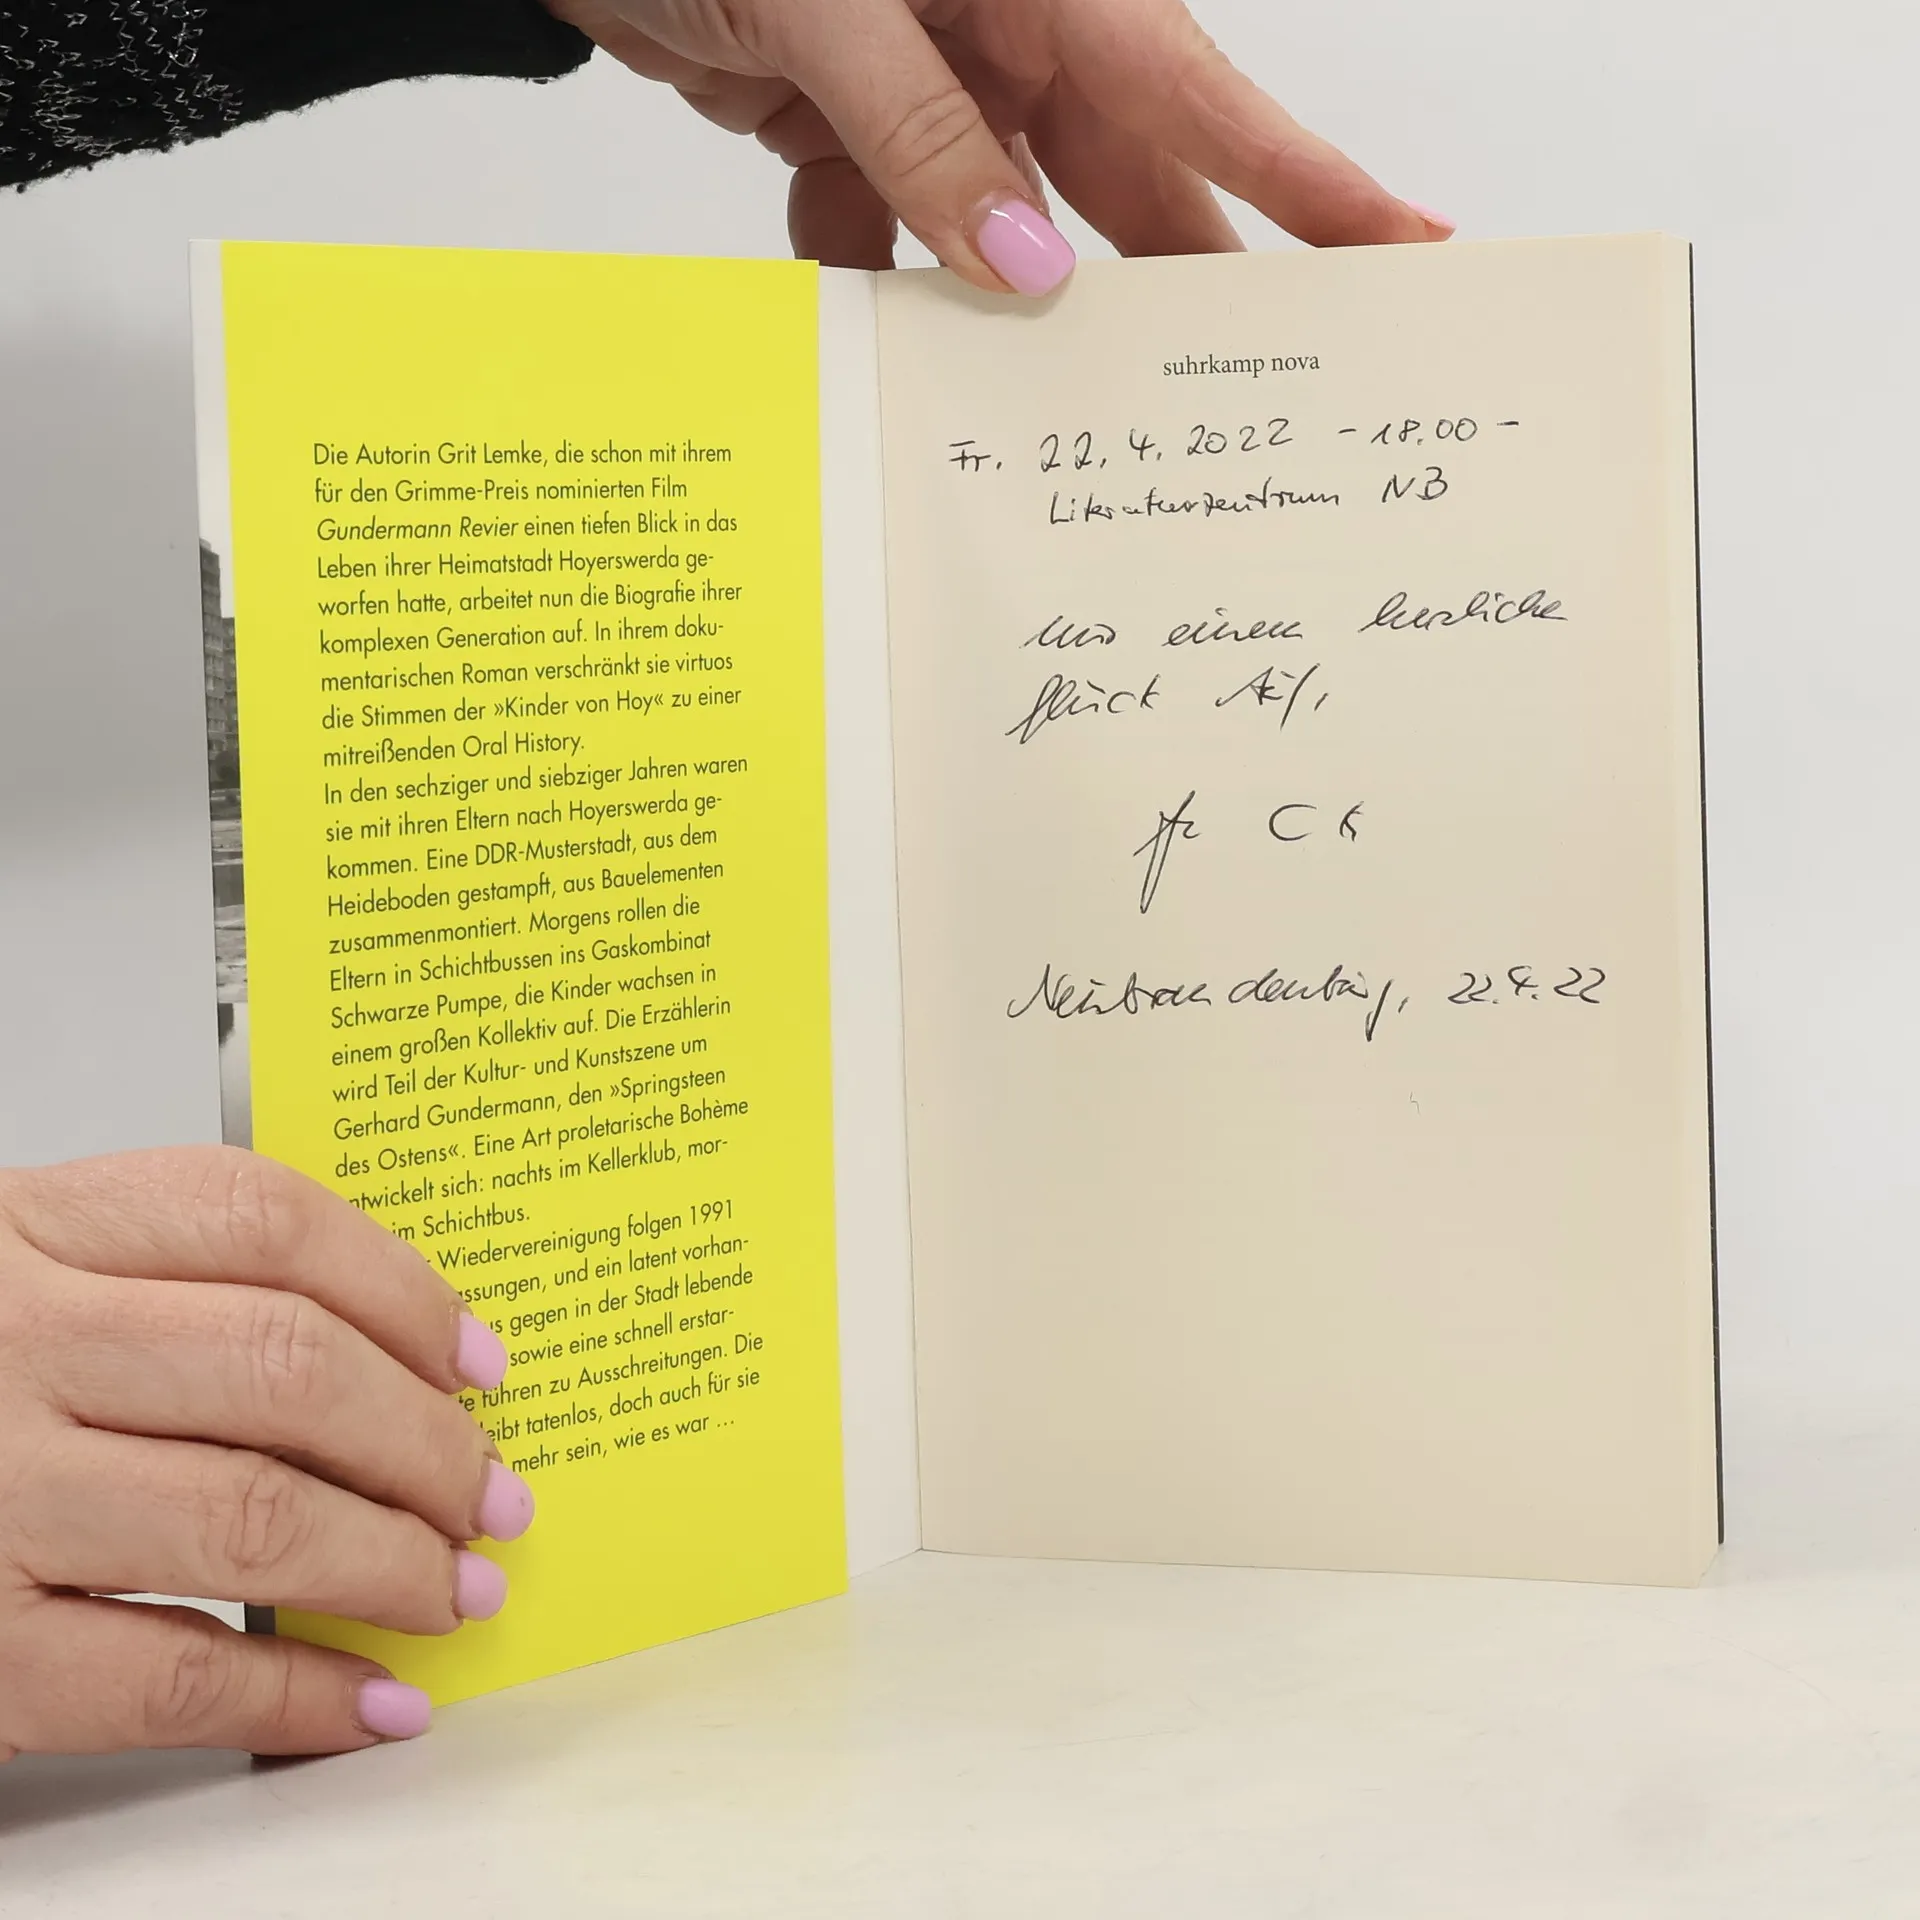 Die Autorin Grit Lemke, die schon mit ihrem
für den Grimme-Preis nominierten Film
Gundermann Revier einen tiefen Blick in das
Leben ihrer Heimatstadt Hoyerswerda ge-
worfen hatte, arbeitet nun die Biografie ihrer
komplexen Generation auf. In ihrem doku-
mentarischen Roman verschränkt sie virtuos
die Stimmen der »Kinder von Hoy« zu einer
mitreißenden Oral History.
In den sechziger und siebziger Jahren waren
sie mit ihren Eltern nach Hoyerswerda ge-
kommen. Eine DDR-Musterstadt, aus dem
Heideboden gestampft, aus Bauelementen
zusammenmontiert. Morgens rollen die
Eltern in Schichtbussen ins Gaskombinat
Schwarze Pumpe, die Kinder wachsen in
einem großen Kollektiv auf. Die Erzählerin
wird Teil der Kultur- und Kunstszene um
Gerhard Gundermann, den »Springsteen
des Ostens«. Eine Art proletarische Bohème
ntwickelt sich: nachts im Kellerklub, mor-
im Schichtbus.
Wiedervereinigung folgen 1991
ssungen, und ein latent vorhan-
us gegen in der Stadt lebende
sowie eine schnell erstar-
te führen zu Ausschreitungen. Die
eibt tatenlos, doch auch für sie
mehr sein, wie es war ...
suhrkamp nova
Fr. 22.4.2022 - 18.00 -
Literaturzentrum NB
einem herzliche
Glück Auf,
Neubrandenburg, 22.4.22